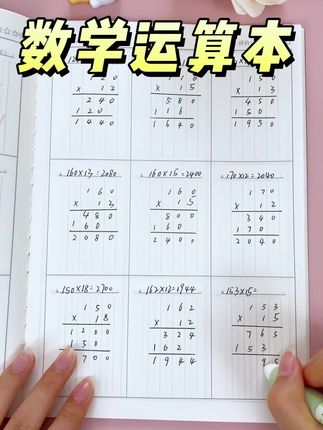 数学运算本
120
150
× 12
× 15
× 13
240
580
450
120
116
150
1440
1640
1950
160×13=2080
160×15=2400
170×12=2040
160
160
170
× 13
× 15
× 12
480
800
340
160
160
170
2080
2400
2040
150×18=2700
162×12=1944
153×15=
150
162
153
× 18
× 12
× 15
1200
324
765
150
162
153
700
1944
95